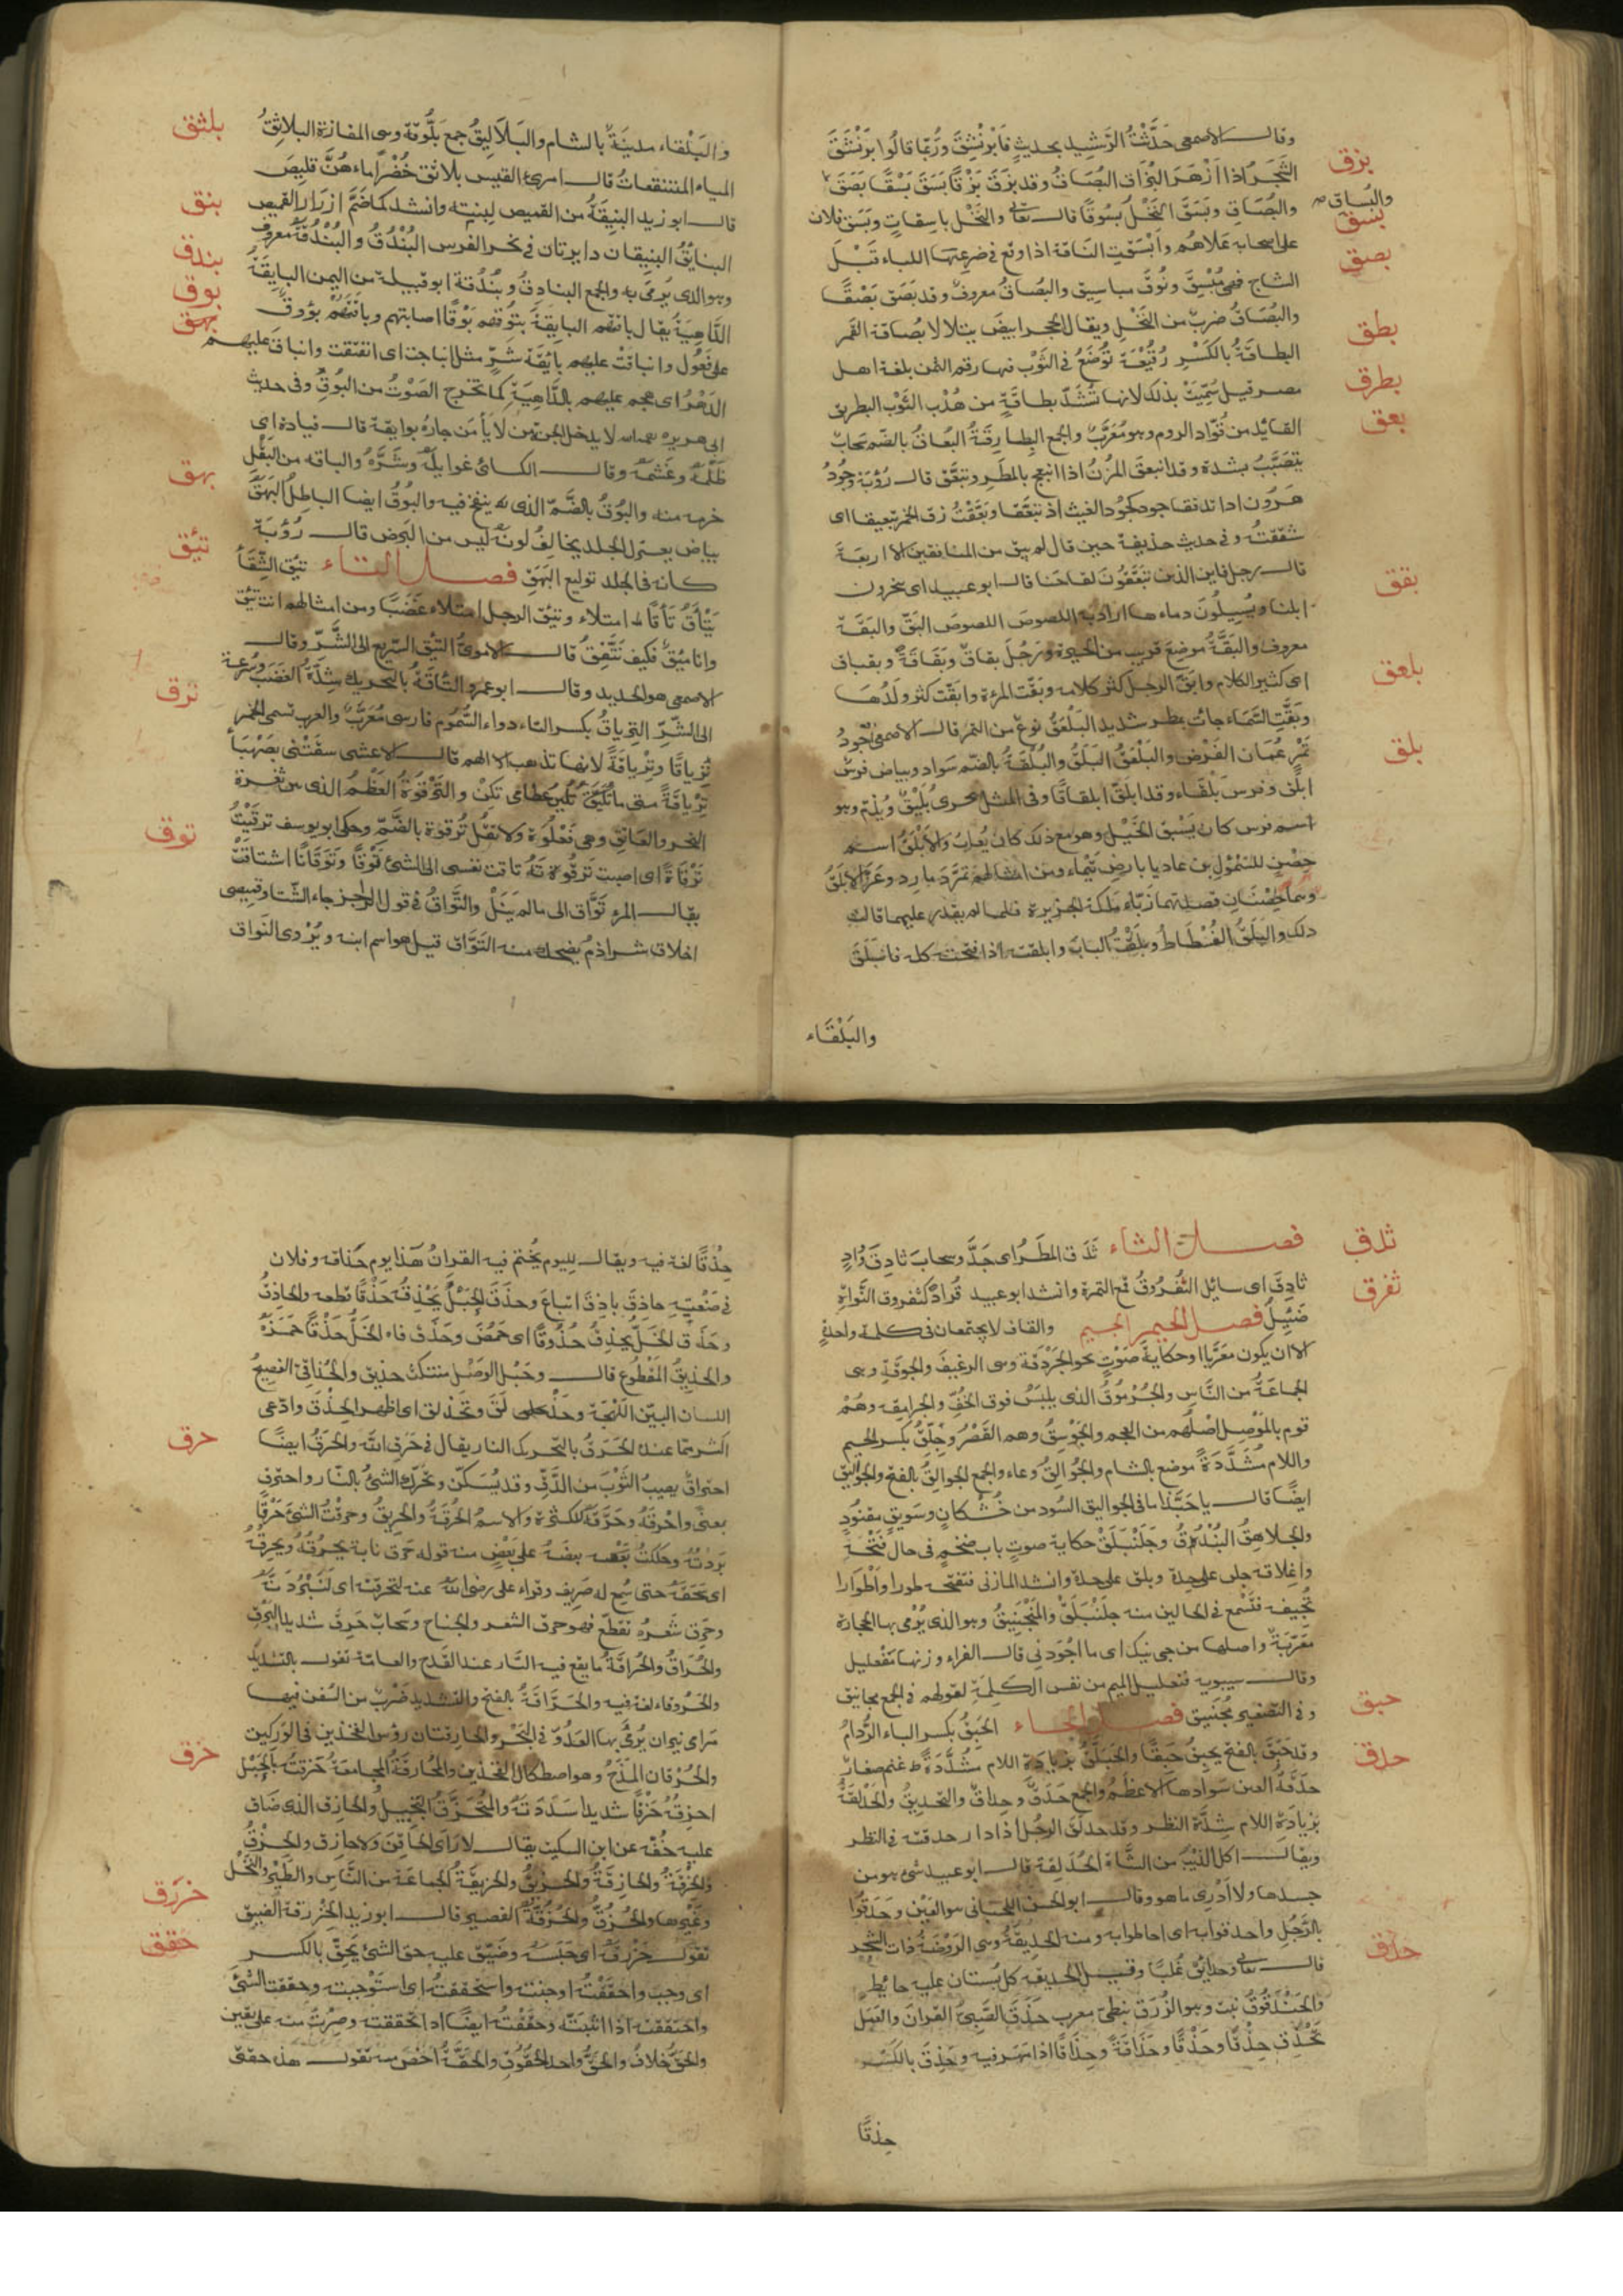 وقال الاصمعى حَدَّثْتُ الرَّشِيد بحديثٍ فَابْرَنْثِقَ وَرُبَّما قالُوا بَرَنْثَقَ
بزق
الشَّجَرُ اذا ازْهَرَ البُزَاق البُصَاقُ وقد بزَقَ بَزْقًا بَسَقَ بَسْقًا بَصَقَ
والبُسَاق
والبُصَاقِ وبَسَقَ النَّخْلُ بسُوقًا قال تعالى والنَّخْل باسِقاتٍ وبَسَق فلان
بسق
على اصحابه عَلاهُم وابْسَقَتِ النَاقة اذا وقع فى ضرعها اللباء قَبْلَ
بصق
النتاج فهى مُبْسِق ونُوق مباسيق والبُصَاقُ معروفٌ وقد بَصَقَ بَصْقًا
والبُصَاقُ ضربٌ من النَّخْلِ ويقال للحجر ابيضَ يتلالا بُصَاقة القمر
بطق
البطاقَةُ بالكَسْرِ رُقَيْعَة تُوضَعُ فى الثَّوْب فيها رقم الثمن بلغة اهل
مصر قيل سُمِّيَتْ بذلك لانها تُشَدُّ بطاقَةٍ من هُدْب الثَّوْب البطريق
بطرق
القائد من قُوّاد الروم وهو مُعَرَّبٌ والجمع البطارقَةُ البُعَاقُ بالضّم سحابٌ
بعق
يتصَبَّبُ بشدة وقد انبعق المزْنُ اذا انبعج بالمطَرِ وتبَعَّق قال رُؤْبَة وجُودُ
هَرُون اذا تدفقا جود كجُود الغيث اذ تبَعّقا وبَعَّقْتُ زق الخمر تبعيقا اى
شققتُه وفى حديث حذيفة حين قال لم يبق من المنافقين الا اربعَة
قال رجل فاين الذين يُبَعِّقُونَ لقاحَنا قال ابو عبيد اى ينحرون
بقق
ابلنا ويُسِيلُونَ دماءها اراد به اللصوصَ اللصوصَ البَقّ والبَقَّة
معروف والبَقَّةُ موضِع قريب من الحيرة ورَجُلٌ بقاقٌ وبَقَاقَةٌ وبقباق
اى كثير الكلام وابَقَّ الرجلُ كثر كلامه وبَقَّتِ المرءة وابَقَّت كثر ولَدُهَا
بلعق
وبَقَّتِ السَّمَاء جاءت بمطر شديد البَلْعَقُ نوعٌ من التمر قال الاصمعى اجْوَدُ
تَمْرِ عُمَان الفَرْض والبَلْعَقُ البَلَقُ والبُلْقَةُ بالضّم سَواد وبياض فرسٌ
بلق
ابلَق وفرس بَلْقاء وقد ابلَقّ ابلقاقًا وفى المثل يجرى بُلَيْقٌ ويُذمّ وهو
اسم فرس كان يَسْبق الخَيْلَ وهو مع ذلك كان يُعابُ والابْلَقُ اسم
حِصْنٍ للسّمُؤلِ بن عاديا بارض تَيْماء ومن امثالهم تمرّدَ مارد وعَزّ الابلَقُ
وهما حِصْنَانِ قصدتهما زَبّاء مَلِكة الجزيرة فلما لم يقدر عليهما قالت
ذلك والبَلَقُ الفُسْطاطُ وبَلَقْتُ البابَ وابلقته اذا فتحته كله فانبَلَقَ
والبَلْقَاء
والبَلْقاء مدينةٌ بالشام والبَلاَليقُ جمع بَلُّوقة وهى المفازة البلاثِقُ
بلثق
المياه المستنقعاتُ قال امرئ القيس بلاثق خُضْرًا ماءهُنَّ قليصَ
قال ابو زيد البنيقَةُ من القميص لبنته وانشد كما ضَمَّ ازرار القميص
بنق
البنايقُ البنيقان دايرتان فى نحر الفرس البُنْدُقُ والبُنْدُقَةُ معروف
بندق
وهو الذى يُرمَى به والجمع البنادِقُ وبُنْدُقة ابو قبيلة من اليمن البايقَةُ
بوق
الدّاهِيَةُ يقال باقتهم البايقَةُ بتُوقهم بَوْقًا اصابتهم وباقَتهُمْ بؤوقٌ
بهق
على فَعُول وانباقتْ عليهم بايقَة شَرٍّ مثل انباجت اى انفتقت وانباقَ عليهم
الدَهْرُ اى هجم عليهم بالدَّاهِيَةِ كما تخرج الصَوْتُ من البُوق وفى حديث
ابى هريره لا يدخل الجنّة من لا يأمَن جارُهُ بوايقة قال قتادة اى
ظلمه وغَشمَه وقال الكسائى غوايله وشَرَّهُ والباقه من البَقْلِ
حزمه منه والبُوقُ بالضَّمّ الذى ينفخ فيه والبُوقُ ايضا الباطلُ البَهَقُ
بهق
بياض يعترى الجلد يخالفُ لونه ليس من البَرص قال رُؤْبَة
تئق
كانه فى الجلد توليع البَهَق فصل التاء تئِقَ السِّقَأُ
يَتْأَقُ تَأَقًا امتلاء وتئق الرجل امتلاء غَضَبًا ومن امثالهم انت تئق
وانا مئق فكيف نَتَّفِقُ قال الاموىّ التئق السّريع الى الشَّرّ وقال
الاصمعى هو الحديد وقال ابو عمرو التَأقَةُ بالتحريك شِدَّةُ الغَضَب وسُرعة
ترق
الى الشّرّ التِرياقُ بكسر التاء دواء السُّمُوم فارسى مُعَرَّبٌ والعرب تسمى الخمر
تِرْياقًا وتِرْياقَةً لانها تذهب بالهم قال الاعشى سقَتْنى بصَهْبَأ
تِرْياقَةً متى ما تُلَيِّنْ عظامى تَلِنْ والتَرْقُوَةُ العَظْمُ الذى بين ثغرة
النحر والعَاتِقِ وهى فَعْلُوَة ولا تقُل تُرقوة بالضّمِّ وحكى ابو يوسف ترقَيْتُ
توق
تَرْقَاةً اى اصبت تَرقُوتَهُ تاقت نفسى الى الشئ تَوْقًا وتَوَقَانًا اشتاقَتْ
يقال المرء تَوَّاق الى ما لم يَنَلْ والتَّوّاقُ فى قول الراجز جاء الشّتا وقميصى
اخلاق شراذمٌ يضحك منه التَوَّاق قيل هو اسم ابنه ويُرْوى النّواق
فصل الثاء ثَدَق المطَرُ اى جَدَّ وسحابٌ ثادِق وَوادٍ
ثدق
ثادِق اى سائِل الثُفْرُوقُ قمع التمرة وانشد ابو عبيد قُرادٌ كثفروق النَّواةِ
ثفرق
ضَئِيلُ فصل الجيم الجيم والقاف لا يجتمعان فى كلمة واحدةٍ
الا ان يكون معَرَّبا او حكايةَ صَوْتٍ نحو الجَرْدَقة وهى الرغيف والجوقَةِ وهى
الجماعَةُ من النَّاسِ والجُرْمُوقُ الذى يلبَسُ فوق الخُفِّ والجرامقة وهُمْ
قوم بالمَوْصِل اصْلُهم من العجم والجَوْسَقُ وهم القَصْرُ وجِلّقُ بكسر الجيم
واللام مُشَدَّدَةً موضع بالشام والجُوَالِقُ وعاء والجمع الجوالقُ بالفتح والجواليق
ايضًا قال يا حَبَّذا ما فى الجواليق السُود من خُشْكانٍ وسَويقٍ مقنُود
والجلاهِقُ البُنْدُقُ وجَلَنْبَلَقْ حكاية صوتِ بابٍ ضخمٍ فى حال فَتْحه
واغلاقه جلن على حدة وبلق على حدة وانشد المازنى فتفتحه طورا واَطْوارا
تُجِيفه فتَسْمع فى الحالين منه جلَنْبَلَقْ والمَنْجَنِيقُ وهو الذى يُرْمى بها الحجارة
معَرّبَةٌ واصلها من جى نيك اى ما اجْوَدنى قال الفراء وزنها مَفْعليل
وقال سيبويه فنعليل الميم من نفس الكلِمَة لقولهم فى الجمع مجانيق
وفى التصغير مُجَينيق فصل الحاء الحَبِقُ بكسر الباء الرُّدَامُ
حبق
وقد حَبَقَ بالفتح يحبِقُ حَبقًا والحَبَلَّقُ بزيادة اللام مُشَدَّدةً غنم صغار
حدق
حَدَقَةُ العين سَوادها الاعظَمُ والجمع حَدَقٌ وحداقٌ والتحديقُ والحَدْلقَةُ
بزيَادَة اللام شِدَّة النظر وقد حدلَقَ الرجُل اذا ادار حدقته فى النظر
ويقال اكل الذِئبُ من الشّاة الحُدَلِقة قال ابو عبيد شئ هو من
جسدها ولا اَدْرى ما هو وقال ابو الحسن اللحيانى هو العَيْن وحَدَقُوا
بالرَّجُلِ واحدقوا به اى احاطوا به ومنه الحَديقَةُ وهى الرَوْضَةُ ذات الشجر
حذق
قال تعالى وحدائقَ غُلْبًا وقيل الحديقه كل بُستان عليه حايطٍ
والحَنْدَقُوقُ نبت وهو الزُرَق نبطىّ معرب حَذَقَ الصَّبِىّ القرانَ والعمَل
يَحْذِق حِذْقًا وحَذْقًا وحَذَاقَةً وحِذَاقًا اذا مَهَر فيه وحَذِقَ بالكَسْرِ
حِذقًا
حِذْقًا لغة فيه ويقال لِليوم يُختم فيه القرانُ هَذا يوم حَذاقه وفلان
فى صَنْعتِهِ حاذِقٌ باذِقٌ اتباعٌ وحذَقَ الحَبْلَ يَحْذِقُه حَذْقًا قطعه والحاذِقُ
وحَذَق الخَلُّ يحذِقُ حُذُوقًا اى حَمُضَ وحَذَق فاه الخَلُّ حَذْقًا حَمزَهُ
والحَذِيقُ المَقْطُوع قال وحَبْل الوَصْل منتكثٌ حذيق والحُذاقىّ الفصيحُ
اللسان البيّن اللَّهْجَة وحَذْلَقَ وتحَذْلق اى اظهر الحِذْق وادّعى
اكثر ممّا عنده الحَرَقُ بالتّحريك النار يقال فى حَرَق الله والحَرَقُ ايضًا
حرق
احتراقٌ يصيبُ الثَّوْبَ من الدَّقِّ وقد يُسَكّن وتحَرَّق الشئُ بالنّار واحترق
بمعنًى واحْرقَهُ وحَرَّقَهُ للكثرة والاسمُ الحُرْقَةُ والحَرِيقُ وحرَقْتُ الشئَ حَرْقًا
بَرَدْتُه وحككتُ بعضه على بعضٍ منه قوله حرَق نابَهُ يحرُقُهُ ويحرِقُهُ
اى سَحَقَهُ حتى سُمِع له صَرِيف وقراء على رضى الله عنه لنَحْرُقنّه اى لَنَبْرُدَنَّهُ
وحَرِق شَعَرهُ تقطّع فهو حرِق الشعر والجناح وسحابٌ حَرِقٌ شديد البَرْقِ
والحُراقُ والحُرَاقَةُ ما يقع فيه النّار عند القَدْح والعامّة تقول بالتشديد
والحَرُوقاء لغة فيه والحَرَّاقَةُ بالفتح والتشديد ضَرْبٌ من السُفن فيها
مَرامى نيران يُرمَى بها العَدُوّ فى البَحْرِ والحارِقتان رؤس الفخذين فى الوَرِكينِ
والحُرْقان المذَحُ وهو اصطكاك الفخذين والمُحَارَقَةُ المجامعَةُ حَزقتُه بالحَبْل
حزق
احزقُه حَزْقًا شديدا شدَدْتَهُ والمُتَحَزِّقُ البَخِيلُ والحازِق الذى ضاق
عليه خُفُّه عن ابن السكيت يقال لا رأى لحاقنٍ ولا حازِق والحِزْقُ
والحِزْقَةُ والحازِقَةُ والحَزِيقُ والحَزِيقَةُ الجماعَة من النَّاسِ والطّيْرِ والنَّخْل
وغَيْرها والحُزُقُّ والحُزُقّةُ القصير قال ابو زيد الحَزْرقَة الضيق
حزرق
تقول حَزْرَقَه اى حَبَسَهُ وضَيّق عليه حق الشئ يَحِقّ بالكسر
حقق
اى وجب واحقَقْتُه اوجبته واستحققته اى استَوْجبته وحققت الشئَ
واحققته اذا اثبَتّه وحقَقْتُه ايضًا اذا تحققته وصِرْت منه على يقين
والحَقّ خلافُ والحَقُّ واحد الحُقُوق والحَقَّةُ اخَصّ منه تقول هذه حقّتى